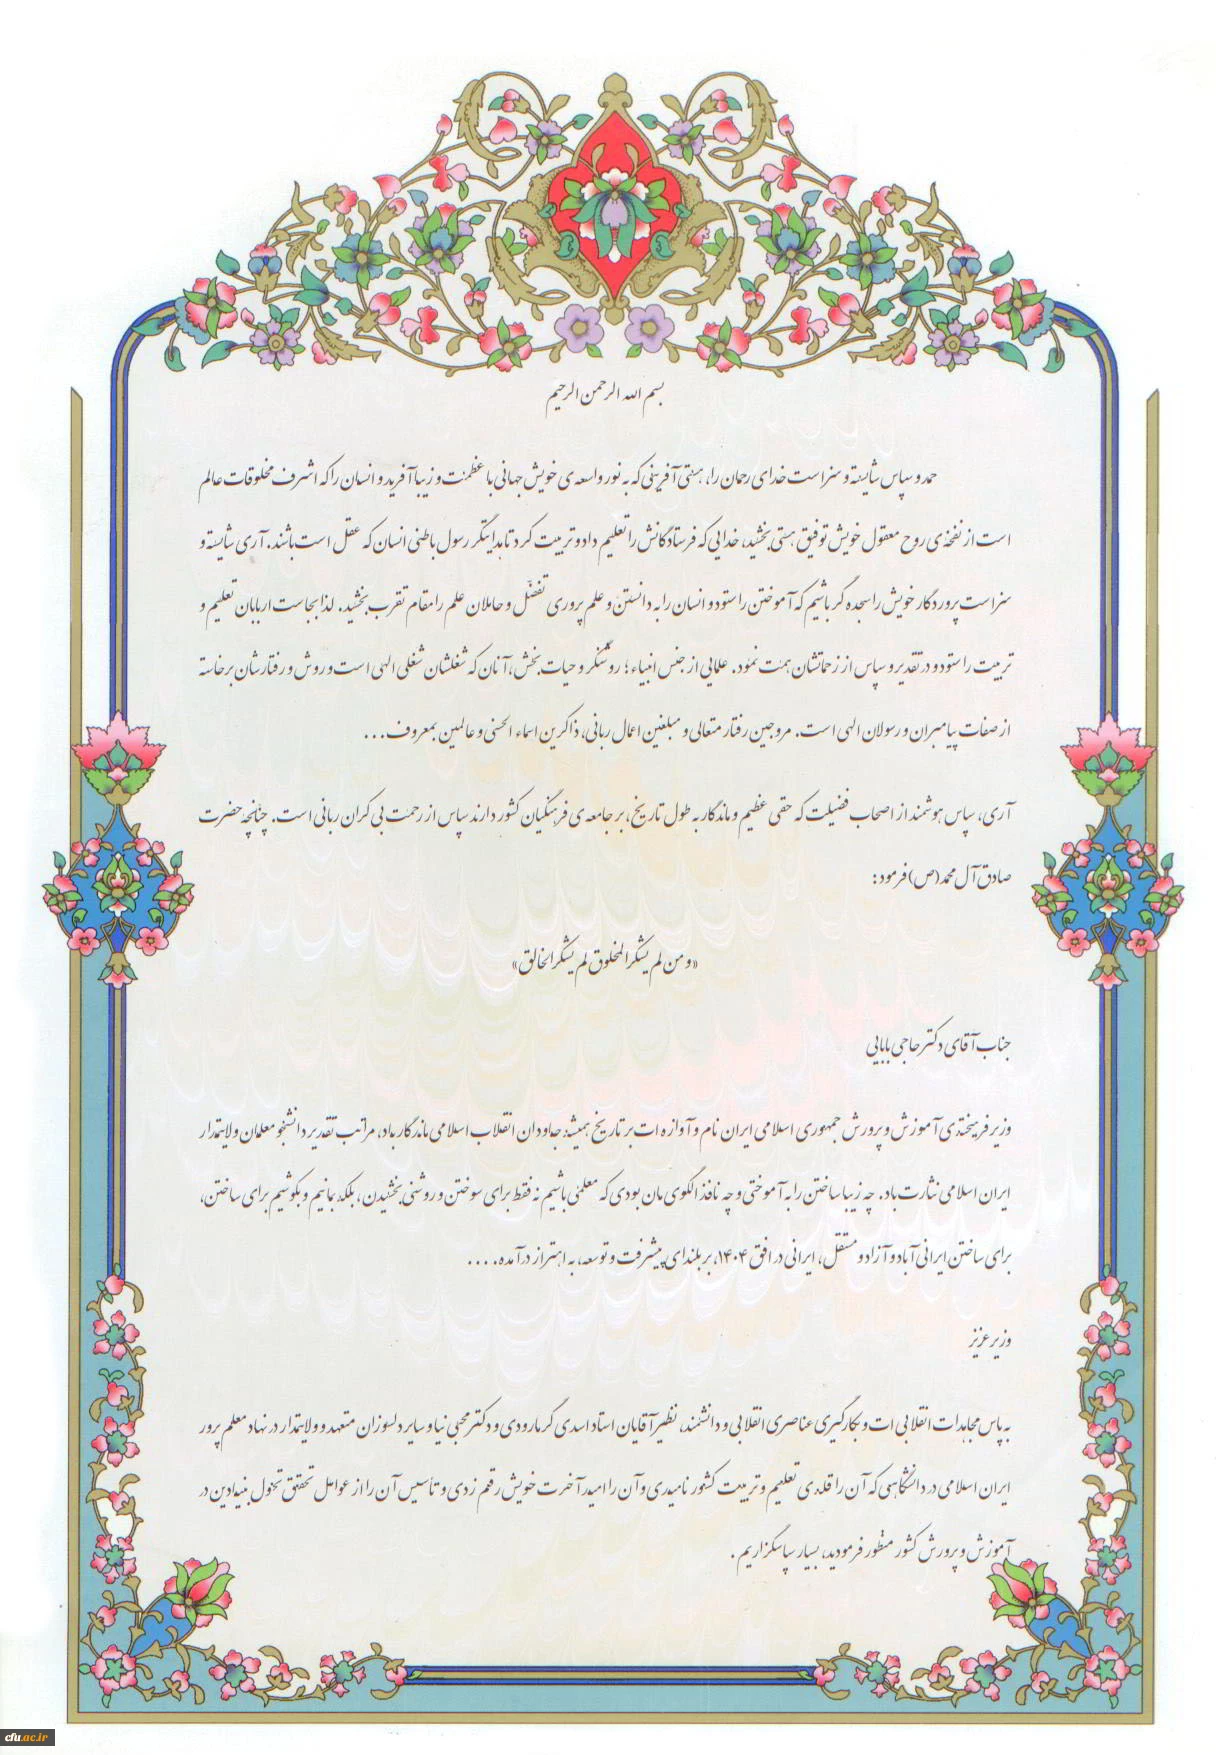 بسم الله الرحمن الرحیم
حمد و سپاس شایسته و سزاست خدای رحمان را، هستی آفرینی که به نور واسعه ی خویش جهانی با عظمت و زیبا آفرید و انسان را که اشرف مخلوقات عالم
است از نفخه ی روح معقول خویش توفیق هستی بخشید، خدایی که فرستادگانش را تعلیم داد و تربیت کرد تا هدایتگر رسول باطنی انسان که عقل است باشند. آری شایسته و
سزاست پروردگار خویش را سجده گر باشیم که آموختن را ستود و انسان را به دانستن و علم پروری تفضّل و حاملان علم را مقام تقرب بخشید. لذا بجاست اربابان تعلیم و
تربیت را ستود و در تقدیر و سپاس از زحماتشان همت نمود. علمایی از جنس انبیاء؛ روشنگر و حیات بخش، آنان که شغلشان شغلی الهی است و روش و رفتارشان برخاسته
از صفات پیامبران و رسولان الهی است. مروجین رفتار متعالی و مبلغین اعمال ربانی، ذاکرین اسماء الحسنی و عالمین بمعروف...
آری، سپاس هوشمند از اصحاب فضیلت که حقی عظیم و ماندگار به طول تاریخ، بر جامعه ی فرهنگیان کشور دارند سپاس از رحمت بی کران ربانی است. چنانچه حضرت
صادق آل محمد(ص) فرمود:
«و من لم یشکر المخلوق لم یشکر الخالق»
جناب آقای دکتر حاجی بابایی
وزیر فرهیخته ی آموزش و پرورش جمهوری اسلامی ایران نام و آوازه ات بر تاریخ همیشه جاودان انقلاب اسلامی ماندگار باد، مراتب تقدیر دانشجو معلمان ولایتمدار
ایران اسلامی نثارت باد. چه زیبا ساختن را به آموختی و چه نافذ الگوی مان بودی که معلمی باشیم نه فقط برای سوختن و روشنی بخشیدن، بلکه بمانیم و بکوشیم برای ساختن،
برای ساختن ایرانی آباد و آزاد و مستقل، ایرانی در افق ۱۴۰۴، بر بلندای پیشرفت و توسعه، به اهتزاز درآمده....
وزیر عزیز
به پاس مجاهدات انقلابی ات و بکارگیری عناصری انقلابی و دانشمند، نظیر آقایان استاد اسدی گرمارودی و دکتر محبی نیا و سایر دلسوزان متعهد و ولایتمدار در نهاد معلم پرور
ایران اسلامی در دانشگاهی که آن را قله ی تعلیم و تربیت کشور نامیدی و آن را امید آخرت خویش رقم زدی و تأسیس آن را از عوامل تحقق تحول بنیادین در
آموزش و پرورش کشور منظور فرمودید، بسیار سپاسگزاریم.
cfu.ac.ir